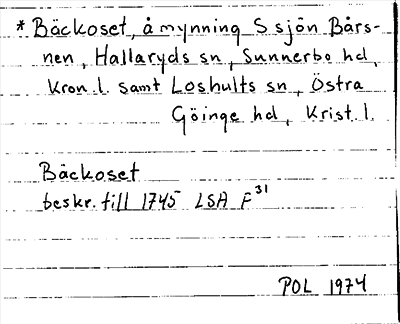 * Bäckoset, å mynning S sjön Bårs-
nen, Hallaryds sn, Sunnerbo hd,
Kron. l. samt Loshults sn, Östra
Göinge hd, Krist. l.
Bäckoset
beskr. till 1745 LSA F31
POL 1974